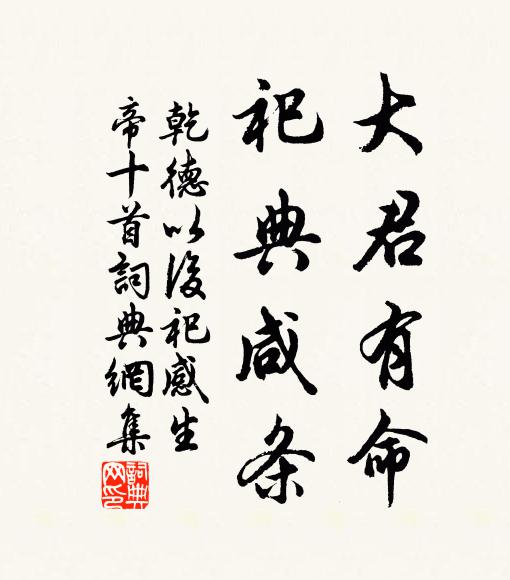 大君有命
祀典咸条
乾德以後祀感生
帝十首詞典網集
詞典
网印